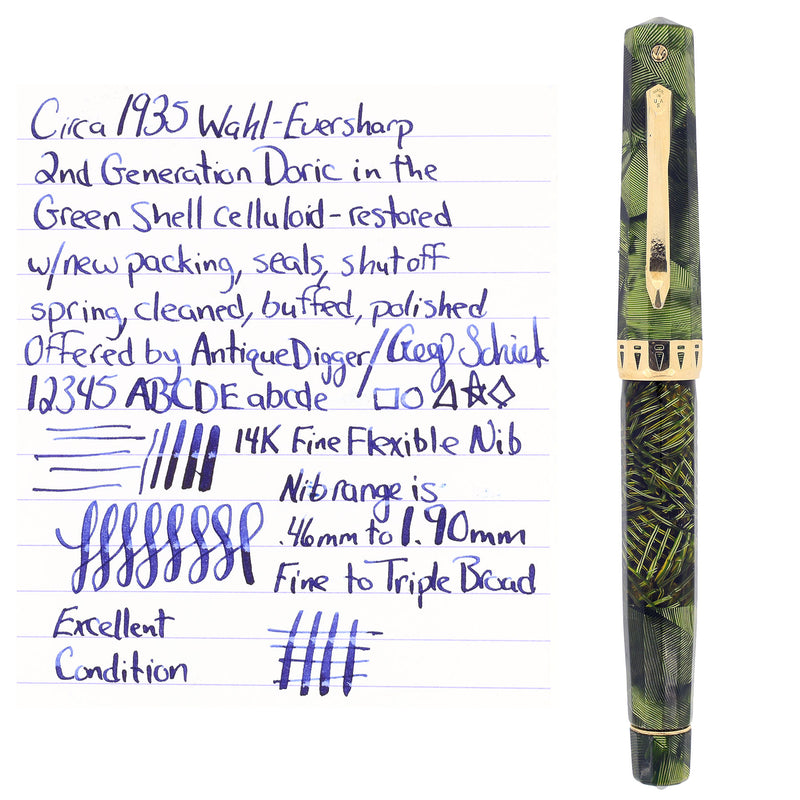 Circa 1935 Wahl-Eversharp
2nd Generation Doric in the
Green Shell celluloid-restored
w/new packing, seals, shutoff
spring, cleaned, buffed, polished
Offered by AntiqueDigger/Gego Schiek
12345 ABCDE abcde
14K Fine Flexible Nib
Nib range is
.46mm to 1.90mm
Fine to Triple Broad
Excellent
Condition